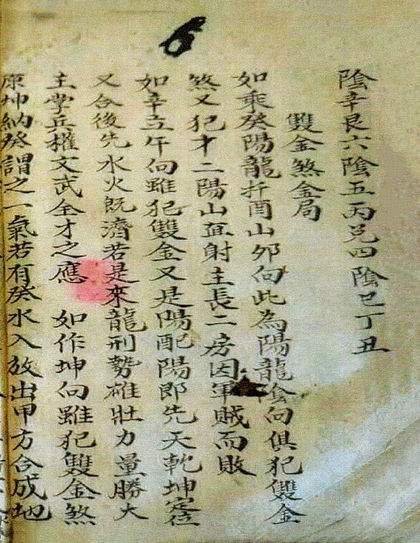 6
陰辛艮六陰五丙兌四陰巳丁丑
雙金煞金局
如乘癸陽龍扦酉山卯向此為陽龍陰向俱犯雙金
煞又犯才二陽山直射主長二房因軍賊而敗
如辛立午向雖犯雙金又是陽配陽即先天乾坤定位
又合後先水火既濟若是來龍刑勢雄壯力量勝大
主掌兵權文武全才之應 如作坤向雖犯雙金煞
原坤納癸謂之一氣若有癸水入放出甲方合成地